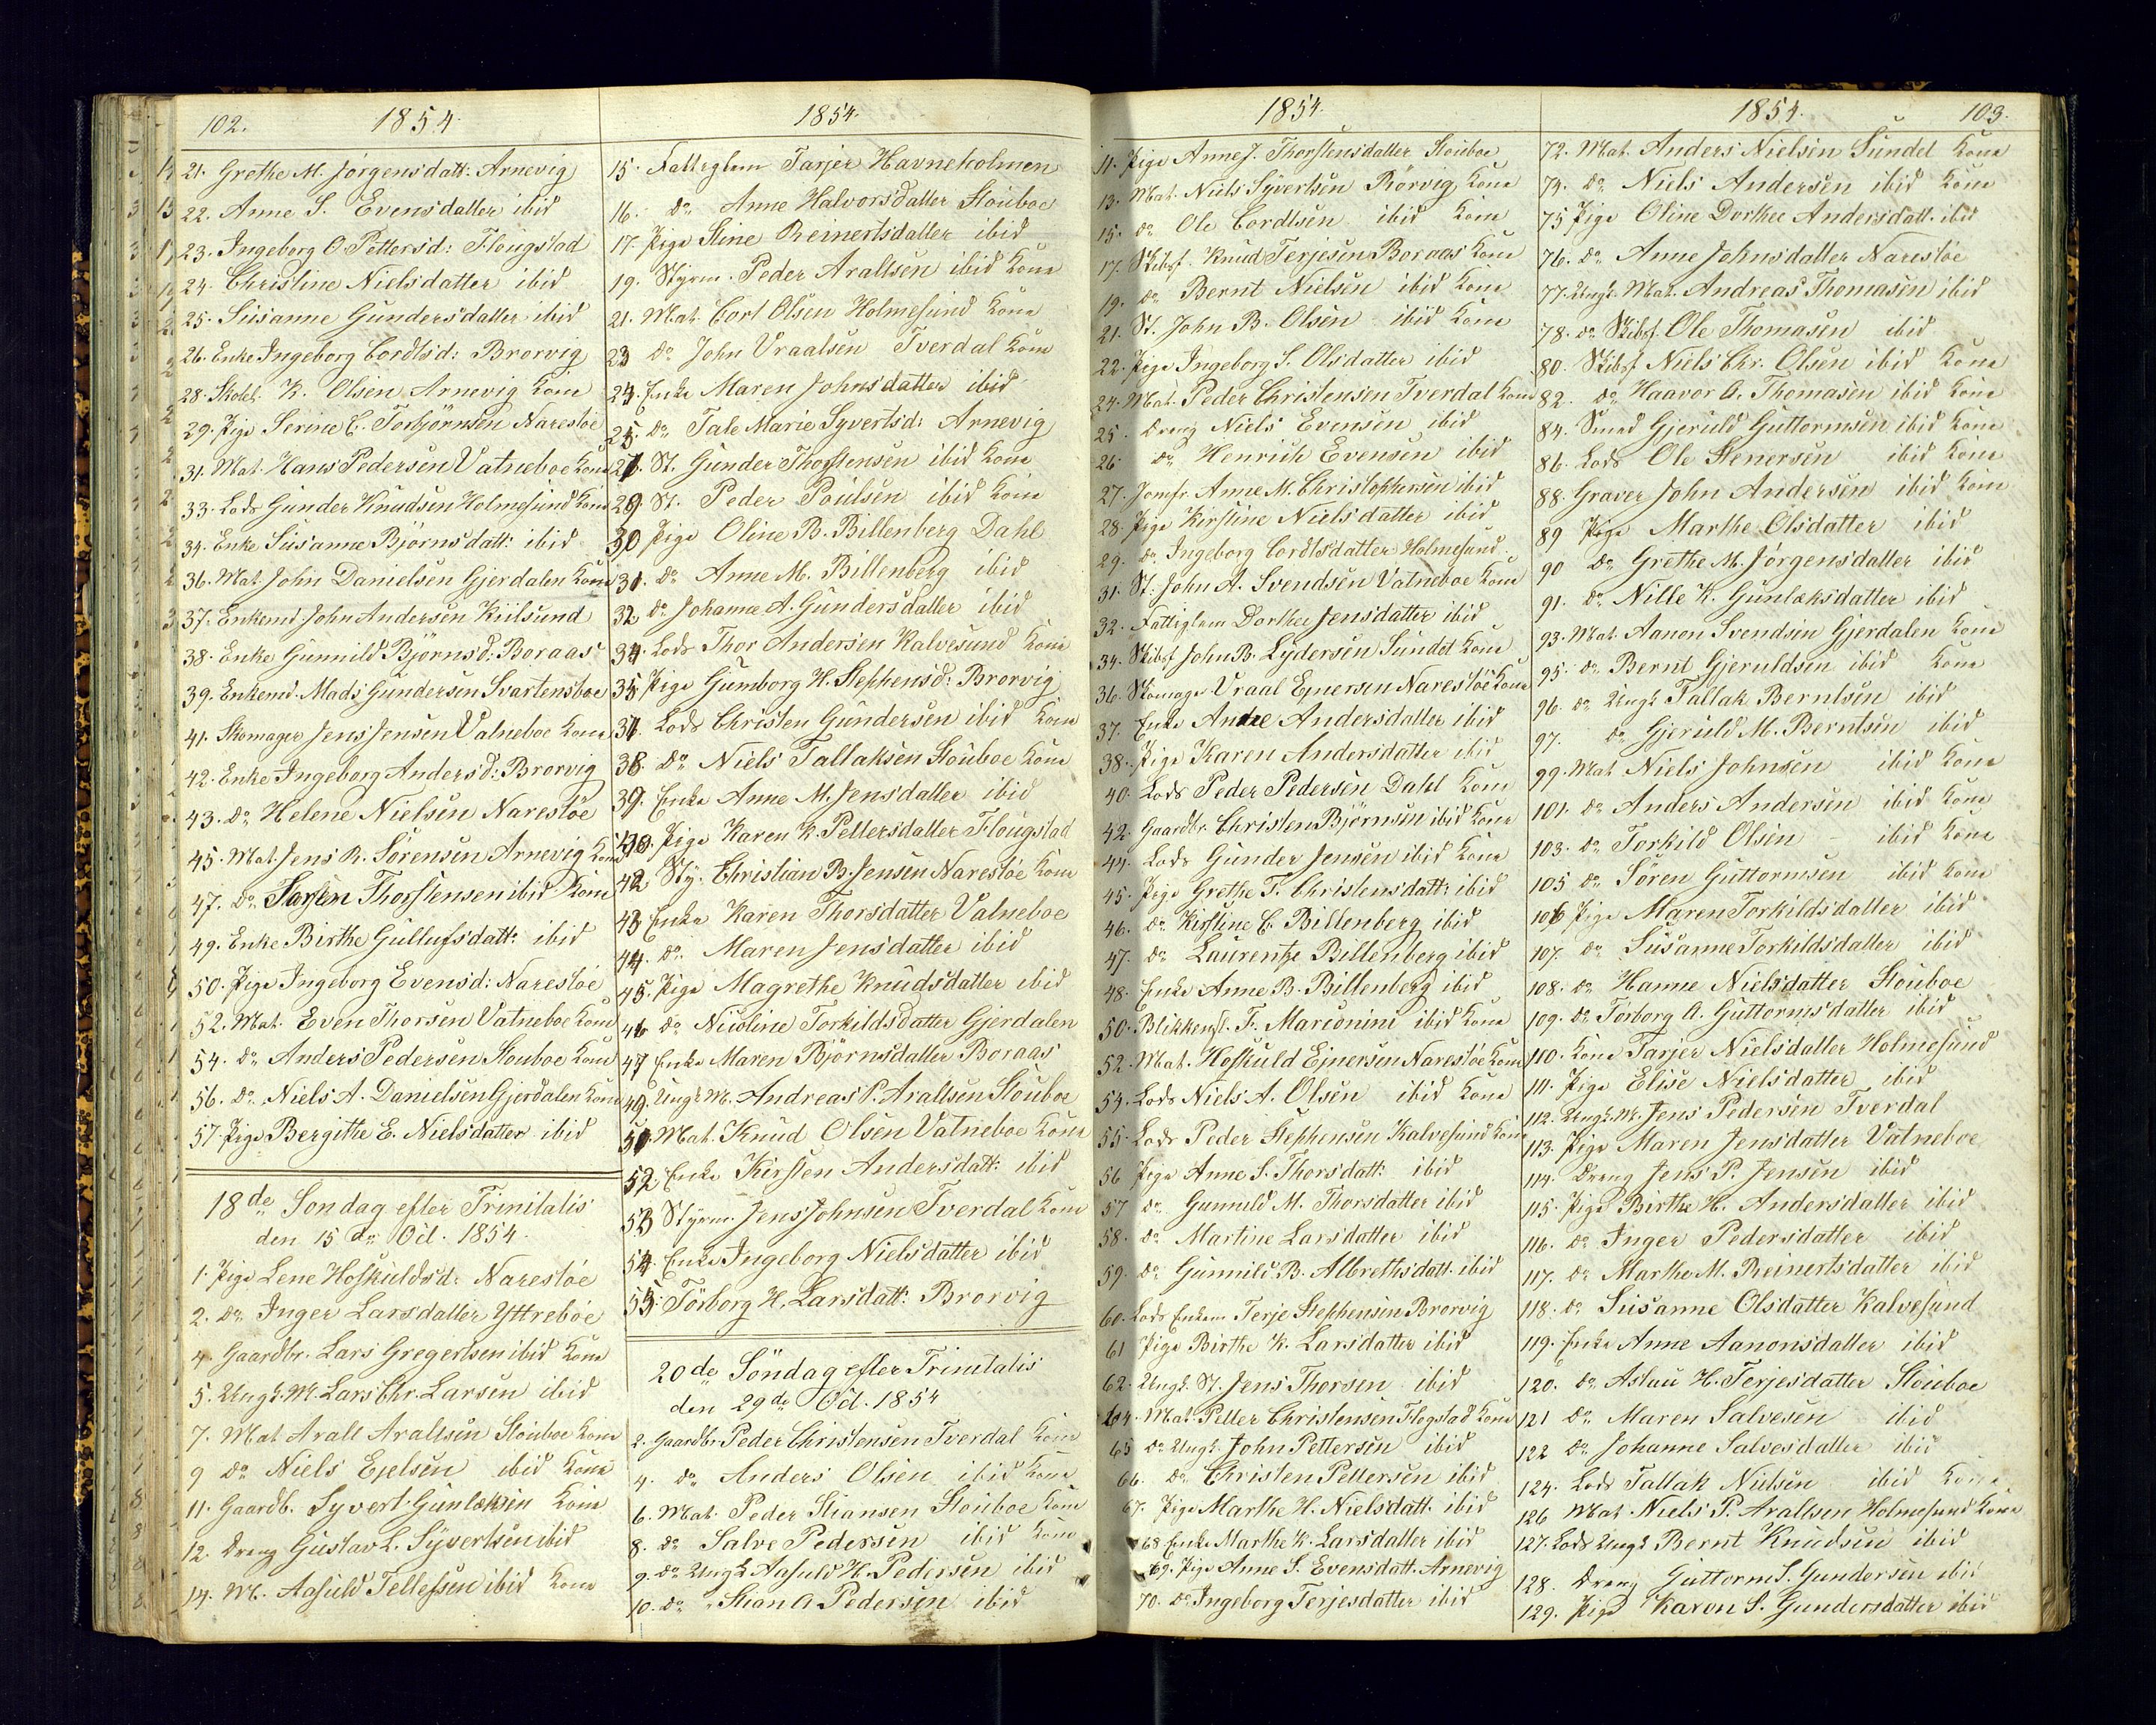 102. 1854
21. Grethe M. Jörgensdatt: Arnevig
22. Anne S. Evensdatter ibid
23. Ingeborg O. Pettersd: Flougstad
24. Christine Nielsdatter ibid
25. Susanne Gundersdatter ibid
26. Enke Ingeborg Cordtsd: Brorvig
28. Skolel. K. Olsen Arnevig Kone
29. Pige Serine C. Torbjörnsen Narestöe
31. Mat. Hans Pedersen Vatneboe Kone
33. Lods Gunder Knudsen Holmesund Kone
34. Enke Susanne Björnsdatt: ibid
36. Mat. John Danielsen Gjerdalen Kone
37. Enkemd. John Andersen Kiilsund
38. Enke Gunnild Björnsd: Boraas
39. Enkemd. Mads Gundersen Svartensboe
41. Skomager Jens Jensen Vatneboe Kone
42. Enke Ingeborg Andersd: Brorvig
43. Do Helene Nielsen Narestöe
45. Mat. Jens R. Sörensen Arnevig Kone
47. Do Torsten Thorstensen ibid Kone
49. Enke Birthe Gullufsdatt: ibid
50. Pige Ingeborg Evensd: Narestöe
52. Mat. Even Thorsen Vatneboe Kone
54. Do Anders Pedersen Stouboe Kone
56. Do Niels A. Danielsen Gjerdalen Kone
57. Pige Bergithe E. Nielsdatter ibid
18de Söndag efter Trinitatis
den 15de Oct. 1854.
1. Pige Lene Hofskuldsd: Narestöe
2. Do Inger Larsdatter Yttreböe
4. Gaardbr. Lars Gregertsen ibid Kone
5. Ungk. M. Lars Chr. Larsen ibid
7. Mat Aralt Araltsen Stouboe Kone
9 Do Niels Ejelsen ibid Kone
11. Gaardb. Syvert Gunlaksen Kone
12. Dreng Gustav L. Syvertsen ibid
14. M. Aasuld Tellefsen ibid Kone
1854.
15. Fattiglem Tarjer Havneholmen
16. Do Anne Halvorsdatter Stouboe
17. Pige Stine Reinertsdatter ibid
19. Styrm. Peder Araltsen ibid Kone
21. Mat. Cort Olsen Holmesund Kone
23 Do John Vraalsen Tverdal Kone
24. Enke Maren Johnsdatter ibid
25. Do Tale Marie Syvertsd: Arnevig
27. St. Gunder Thorstensen ibid Kone
29. St. Peder Poulsen ibid Kone
30 Pige Oline B. Billenberg Dahl
31. Do Anne M. Billenberg ibid
32 Do Johanne A. Gundersdatter ibid
34 Lods Thor Andersen Kalvesund Kone
35 Pige Gumborg H. Stephensd: Brorvig
Lods Christen Gundersen ibid Kone
38. Do Niels Tallaksen Stouboe Kone
39. Enke Anne M. Jensdatter ibid
40. Pige Karen K. Pettersdatter Flougstad
42 Sty. Christian B. Jensen Narestöe Kone
43 Enke Karen Thorsdatter Vatneboe
44. do. Maren Jensdatter ibid
45. Pige Magrethe Knudsdatter ibid
46 do Nicoline Torkildsdatter Gjerdalen
47 Enke Maren Björnsdatter Boraas
49. Ungk. M. Andreas P. Araltsen Stouboe
51. Mat. Knud Olsen Vatneboe Kone
52. Enke Kirsten Andersdatt: ibid
53 Styrm. Jens Johnsen Tverdal Kone
54 Enke Ingeborg Nielsdatter ibid
55. Torborg H. Larsdatt: Brorvig
20de Söndag efter Trinitatis
den 29de Oct. 1854
2. Gaardbr. Peder Christensen Tverdal Kone
4. do Anders Olsen ibid Kone
6. Mat. Peder Stiansen Stouboe Kone
8. do Salve Pedersen ibid Kone
9. do Ungk Aasuld H. Pedersen ibid
10. do Stian A Pedersen ibid
1854.
11. Pige Anne J. Thorstensdatter Stouboe
13. Mat. Niels Syvertsen Rörvig Kone
15. do Ole Cordtsen ibid Kone
17. Skibsf. Knud Terjesen Boraas Kone
19. do Bernt Nielsen ibid Kone
21. St. John B. Olsen ibid Kone
22. Pige Ingeborg S. Olsdatter ibid
24. Mat. Peder Christensen Tverdal Kone
25. Dreng Niels Evensen ibid
26 do Henrich Evensen ibid
27. Jomfr. Anne M. Christophersen ibid
28. Pige Kirstine Nielsdatter ibid
29. do Ingeborg Cordtsdatter Holmesund
31. St. John A. Svendsen Vatneboe Kone
32. Fattiglem Dorthe Jensdatter ibid
34. Skibsf John B. Lydersen Sundet Kone
36. Skomager Vraal Ejnersen Narestöe Kone
37. Enke Andersdatter ibid
38. Pige Karen Andersdatter ibid
40. Lods Peder Pedersen Dahl Kone
42. Gaardbr. Christen Björnsen ibid Kone
44. Lods Gunder Jensen ibid Kone
45. Pige Grethe T. Christensdatt: ibid
46. do Kirstine C. Billenberg ibid
47. do Laurentze Billenberg ibid
48. Enke Anne B. Billenberg ibid
50. Blikkensl. F. Marconini ibid Kone
52. Mat. Hofskuld Ejnersen Narestöe Kone
54. Lods Niels A. Olsen ibid Kone
55. Lods Peder Stephensen Kalvesund Kone
56 Pige Anne S. Thorsdatt: ibid
57 do Gunnild M. Thorsdatter ibid
58. do Martine Larsdatter ibid
59. do Gunnild B. Albrethsdatt. ibid
60. Lods Enkem Terje Stephensen Brorvig
61 Pige Birthe K. Larsdatter ibid
62. Ungk. St. Jens Thorsen ibid
64. Mat. Petter Christensen Flegstad Kone
65 do Ungk. John Pettersen ibid
66. do Christen Pettersen ibid
67. Pige Marthe H. Nielsdatt. ibid
68 Enke Marthe K. Larsdatter ibid
69. Pige Anne S. Evensdatt. Arnevig
70. do Ingeborg Terjesdatter ibid
1854. 103.
72. Mat. Anders Nielsen Sundet Kone
74. do Niels Andersen ibid Kone
75 Pige Oline Dorthee Andersdatt. ibid
76. do Anne Johnsdatter Narestöe
77. Ungk. Mat. Andreas Thomasen ibid
78. do Skibsf. Ole Thomasen ibid
80. Skibsf Niels Chr. Olsen ibid Kone
82. do Haavor A. Thomasen ibid Kone
84. Smed Gjeruld Guttormsen ibid Kone
86. Lods Ole Stenersen ibid Kone
88. Graver John Andersen ibid Kone
89 Pige Marthe Olsdatter ibid
90 do Grethe M. Jörgensdatter ibid
91. do Nille K. Gunlaksdatter ibid
93. Mat. Aanon Svendsen Gjerdalen Kone
95. do Bernt Gjeruldsen ibid Kone
96. do Ungk Tallak Berntsen ibid
97. do Gjeruld M. Berntsen ibid
99. Mat Niels Johnsen ibid Kone
101. do Anders Andersen ibid Kone
103. do Torkild Olsen ibid Kone
105 do Sören Guttormsen ibid Kone
106 Pige Maren Torkildsdatter ibid
107. do Susanne Torkildsdatter ibid
108. do Hanne Nielsdatter Stouboe
109. do Torborg A. Guttormsdatter ibid
110. Kone Tarjer Nielsdatter Holmesund
111. Pige Elise Nielsdatter ibid
112. Ungk. M. Jens Pedersen Tverdal
113. Pige Maren Jensdatter Vatneboe
114. Dreng Jens P. Jensen ibid
115. Pige Birthe H. Andersdatter ibid
116. do Inger Pedersdatter ibid
117. do Marthe M. Reinertsdatter ibid
118. do Susanne Olsdatter Kalvesund
119. Enke Anne Aanonsdatter ibid
120. do Aslau H. Terjesdatter Stouboe
121 do Maren Salvesen ibid
122 do Johanne Salvesdatter ibid
124. Lods Tallak Nielsen ibid Kone
126 Mat. Niels P. Araltsen Holmesund Kone
127. Lods Ungk Bernt Knudsen ibid
128. Dreng Guttorm S. Gundersen ibid
129. Pige Karen S. Gundersdatter ibid